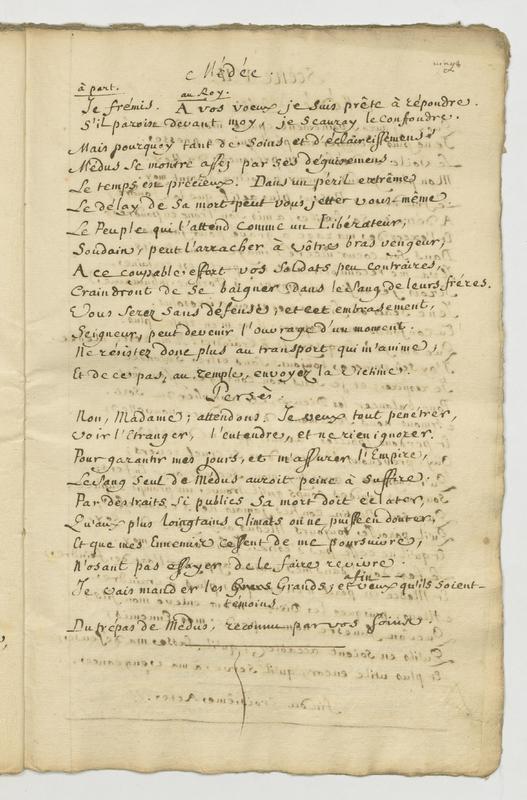 Médée.
à part. au Roy.
Je frémis. A vos voeux je suis prête à répondre.
S'il paroist devant moy, je sçauray le confondre.
Mais pourquoy tant de soins et d'éclaircissemens?
Médus se montre assez par ses déguisemens.
Le temps est précieux. Dans un péril extrême
Le délay de sa mort peut vous jetter vous-même
Le Peuple qui l'attend comme un Libérateur,
Soudain, peut l'arracher à vôtre bras vengeur,
A ce coupable effort vos soldats peu contraires,
Craindront de se baigner dans le sang de leurs fréres.
Vous serez sans défense, et cet embrasement,
Seigneur, peut devenir l'ouvrage d'un moment.
Ne résistez donc plus au transport qui m'anime,
Et de ce pas, au temple, envoyez la victime.
Persès.
Non, Madame; attendons. Je veux tout penétrer,
Voir l'Etranger, l'entendre, et ne rien ignorer.
Pour garantir mes jours, et m'assurer l'Empire,
Le sang seul de Médus auroit peine à suffire.
Par des traits si publics sa mort doit éclater,
Qu'aux plus loingtains climats on ne puisse en douter,
Et que mes Ennemis cessent de me poursuivre,
N'osant pas essayer de le faire revivre.
Je vais mander les Grands; et veux afin qu'ils soient
temoins
Du trépas de Médus, reconnu par vos soins.